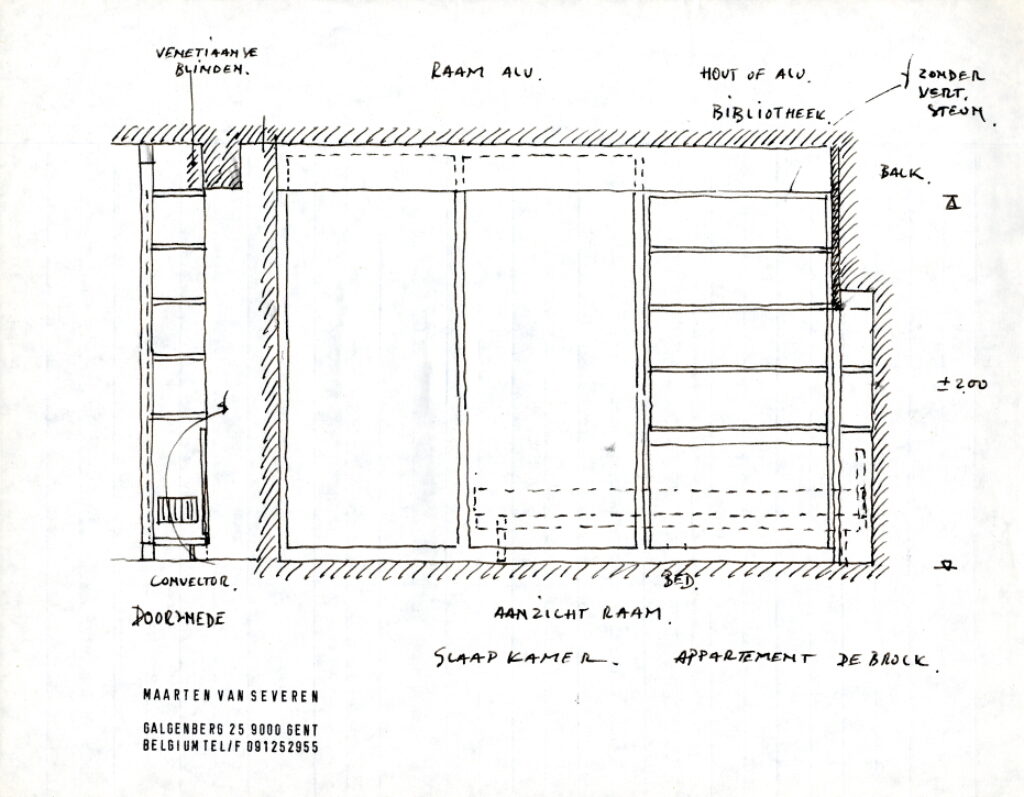 VENETIAANSE
BLINDEN.
RAAM ALU.
HOUT OF ALU.
BIBLIOTHEEK.
ZONDER
VERT.
STEUN.
BALK.
± 200
CONVECTOR.
DOORSNEDE
BED.
AANZICHT RAAM.
SLAAPKAMER.
APPARTEMENT DE BROCK.
MAARTEN VAN SEVEREN
GALGENBERG 25 9000 GENT
BELGIUM TEL/F 091252955